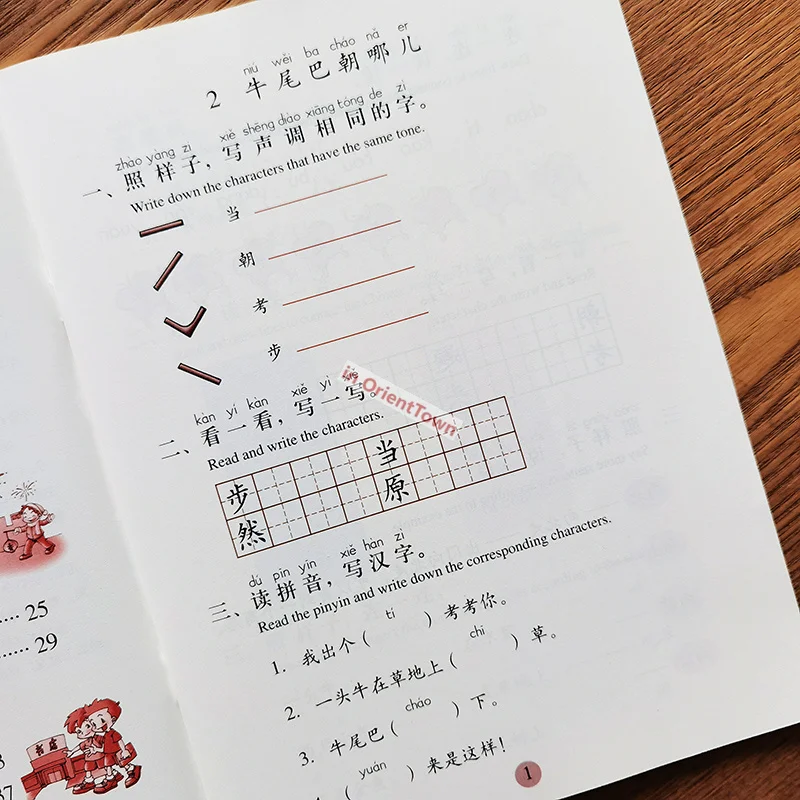 niú wěi ba cháo nǎ er
2 牛尾巴朝哪儿
zhào yàng zi xiě shēng diào xiāng tóng de zì
一、照样子，写声调相同的字。
Write down the characters that have the same tone.
当
朝
考
步
kàn yí kàn xiě yì xiě
二、看一看，写一写。
Read and write the characters.
步 当
然 原
dú pīn yīn xiě hàn zì
三、读拼音，写汉字。
Read the pinyin and write down the corresponding characters.
tí
1. 我出个（ ）考考你。
chī
2. 一头牛在草地上（ ）草。
cháo
3. 牛尾巴（ ）下。
yuán
（ ）来是这样！
1
in.OrientTown
25
29
37